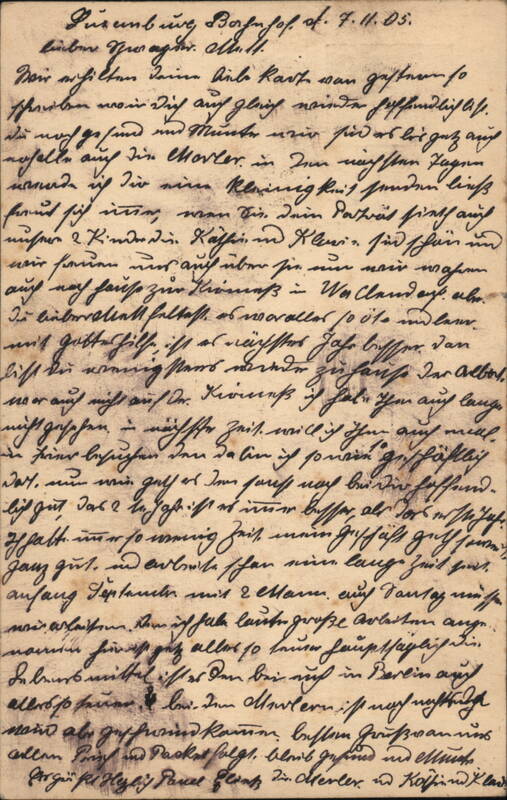 Luxemburg Bahnhof. d. 7.11.05.
lieber Schwager. Matt.
Wir erhilten deine liebe Karte von gestern so
schreiben wir dich auch gleich wieder hoffendlich ist.
du noch gesund und Munter wir sind es bis jetz auch
noch alle auch die Merler. in den nächsten Tagen
werde ich dir eine kleinigkeit senden
freut sich imer, wen Sie dein Porträt sieht auch
unsere 2. Kinder die Käthi und Klari sind schön und
wir freuen uns auch über sie nun wir wahren
auch nach hause zur Kirmeß in Wallendorf. aber
du lieber Matt fehltest. es war alles so öte und leer.
mit gotteshilfe ist es nächstes Jahr besser. dan
bist du wenigstens wieder zu hause der Albert.
war auch nicht auf der Kirmeß ich habe Ihm auch lange
nicht gesehen. in nächster Zeit. will ich Ihm auch mal
in Trier besuchen den da bin ich so wie geschäftlich
dort. nun wie geth es den sonst noch bei dir hoffend-
lich gut das 2te Jahr ist es imer besser als das erste Jahr.
Ich habe imer so wenig Zeit. mein Geschäft geth soweit
ganz gut. und arbeite schon eine lange Zeit seit.
anfang September mit 2 Mann. auch Sontag müssen
wir arbeiten. den ich habe lauter große Arbeiten ange-
nomen hier ist jetz alles so teuer hauptsäglich die
Lebensmittel ist es den bei euch in Berlin auch
alles so teuer. bei den Merlern ist noch nichts
wird aber geschwind kommen. besten Gruß von uns
allen Brief und Packet folgt. bleib gesund und Munter
Es grüßt Herzlich Paul die Merler. und Käthi und Klari